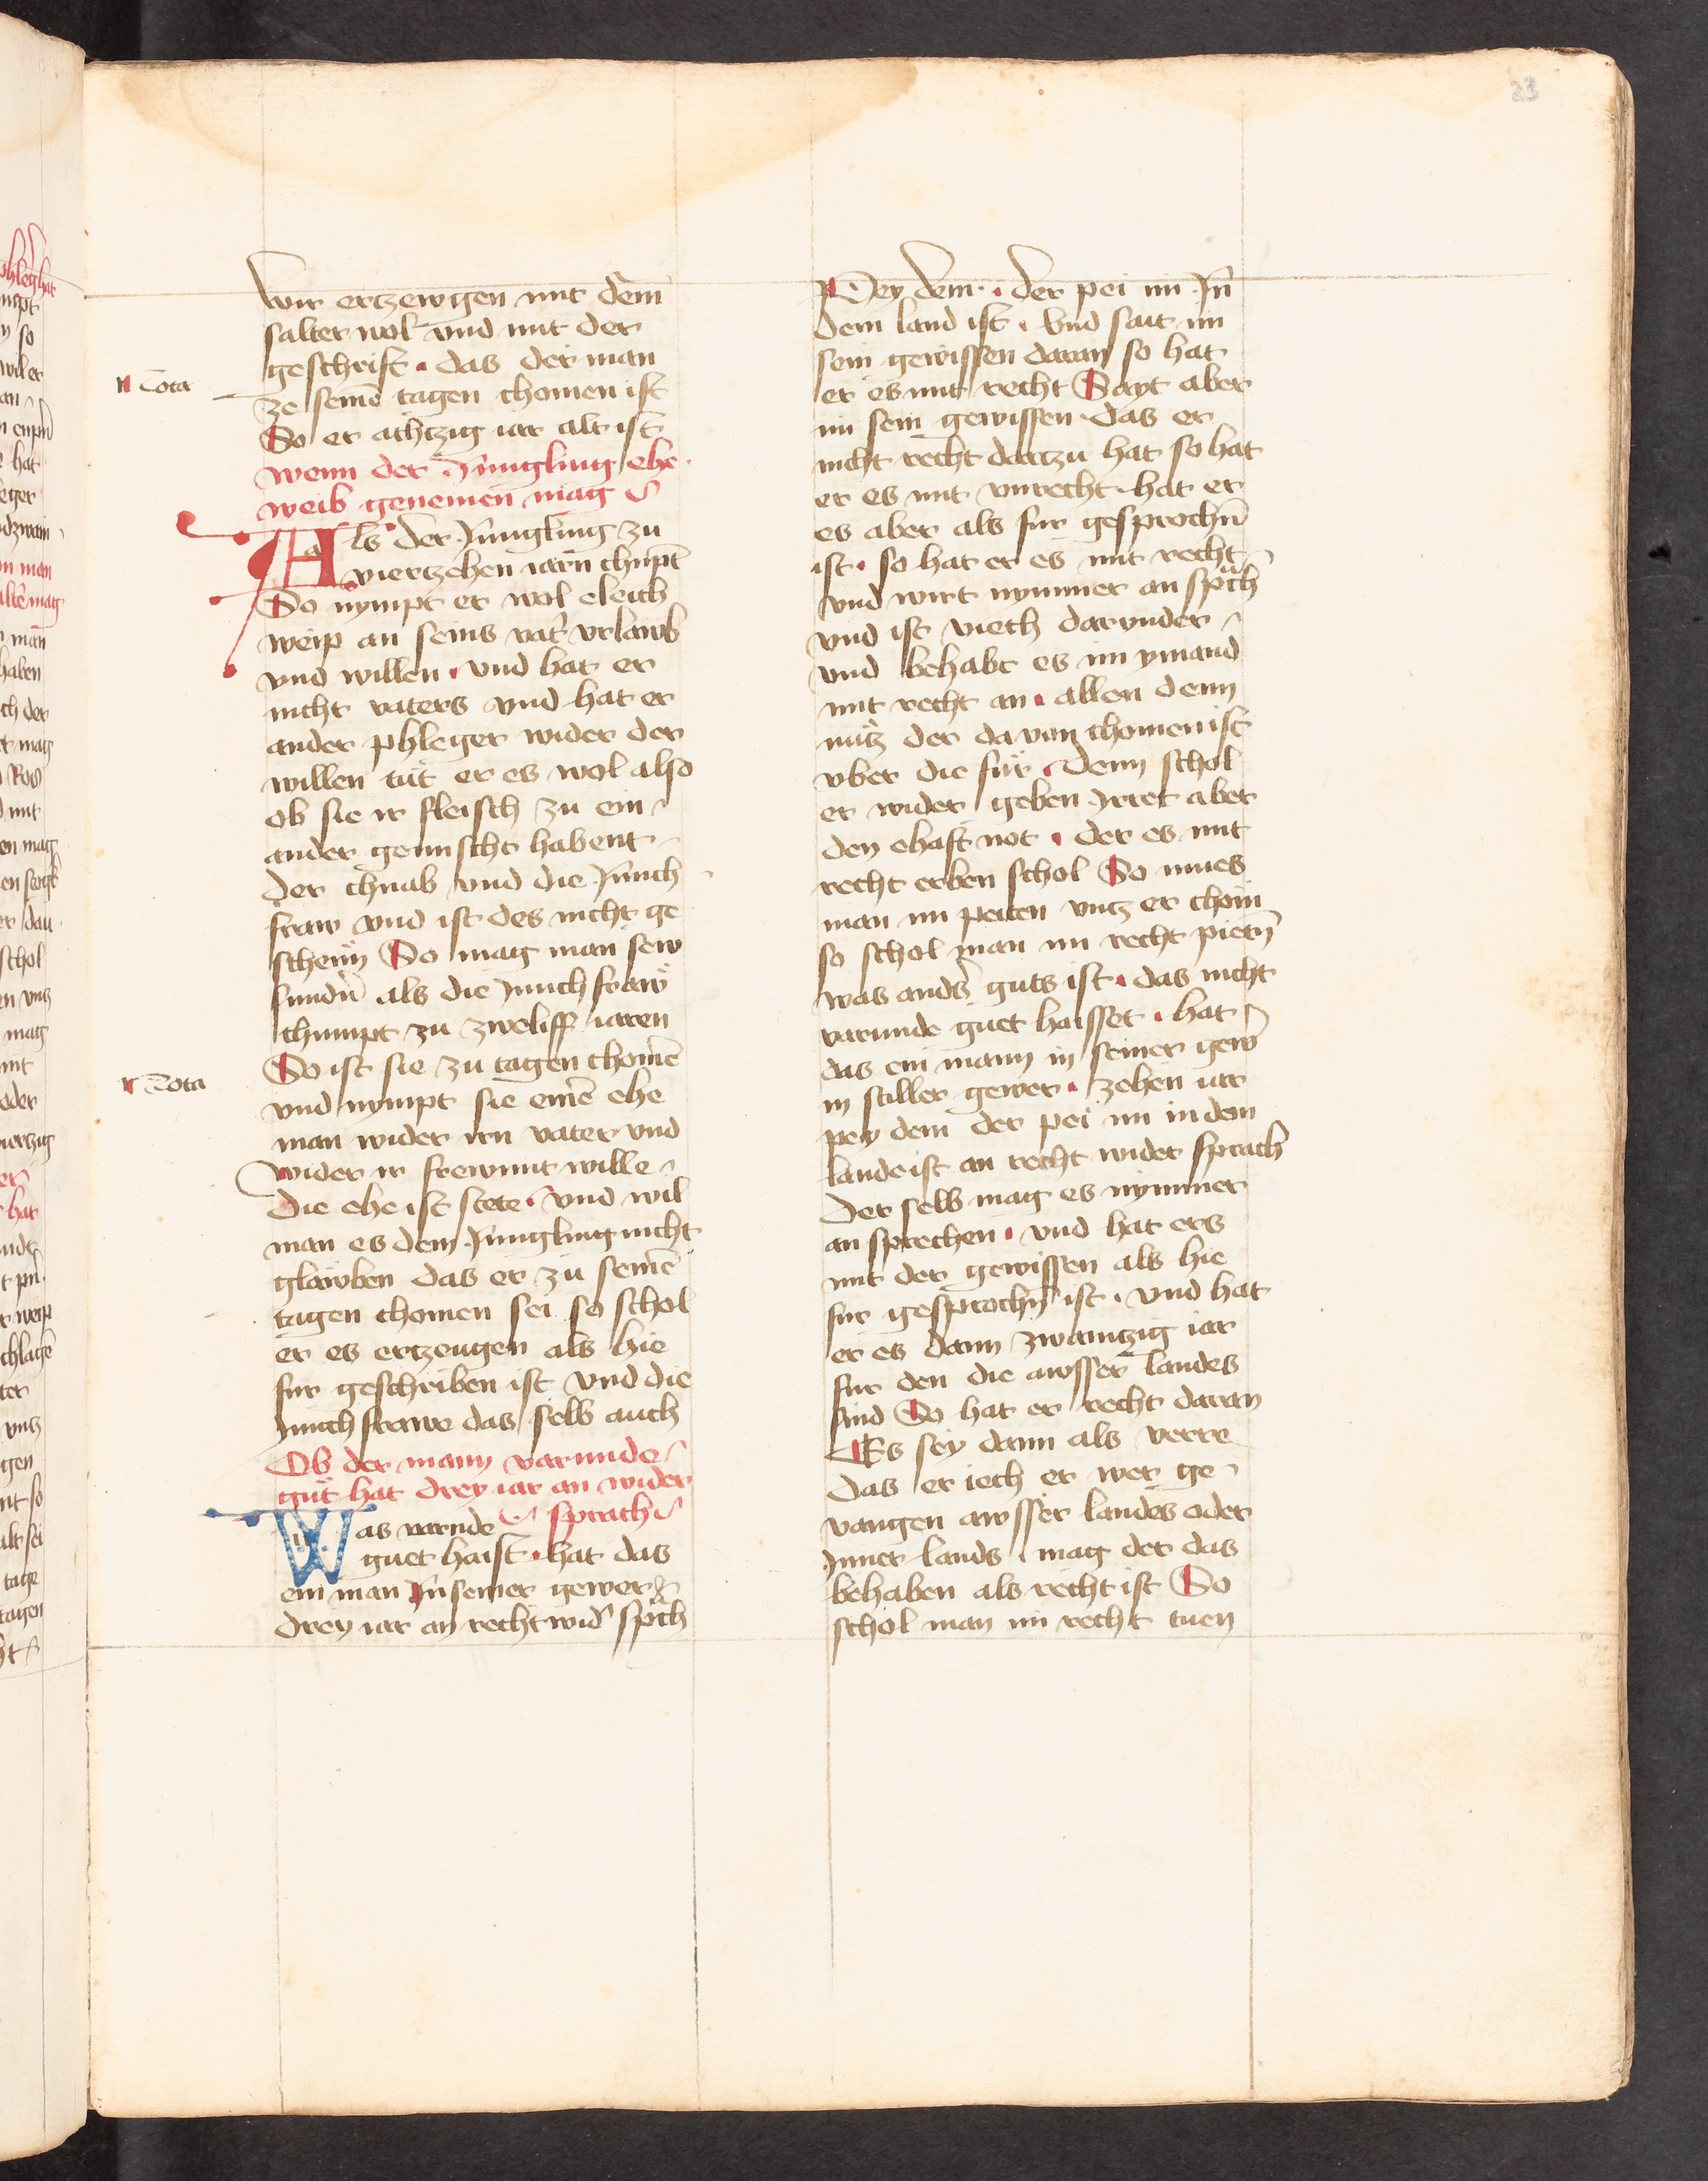 23
wir ertzewgen mit dem̄
salter wol vnd mit der
geschrift · das der man
Nota
ze seinē tagen chomen ist
So er achtzig iar alt ist
wenn der Jungling ehe
weib genemen mag
Als der Jungling zu
viertzehen iarn chūpt
So nympt er wol eleich
weip an seins vat̄ vrlawb
vnd willen · vnd hat er
nicht vaters vnd hat er
ander phleger wider der
willen tüt er es wol also
ob sie ir fleisch zu ein
ander gemischt habent
der chnab vnd die Junch
fraw vnd ist des nicht ge
schehn So mag man sew
sundn̄ als die Junchfraw
chumpt zu zweliff iaren
Nota
So ist sie zu tagen chomē
vnd nympt sie einē ehe
man wider irn vater vnd
wider ir frewnnt wille
die ehe ist stete · vnd wil
man es dem Jungling nicht
glawben das er zu seinē
tagen chomen sei so schol
er es ertzeugen als hie
fur geschriben ist vnd die
Junchfrawe das selb auch
Ob der mann varunde
gut hat drey iar an wider
sprach
Was varnde
guet haist · hat das
ein man Jn seiner gewer
drey iar an recht wid̄ sp̄ch
Pey dem · der pei im Jn
dem land ist · vnd sait im
sein gewissen daran so hat
er es mit recht Sayt aber
im sein gewissen das er
nicht recht dartzu hat so hat
er es mit vnrecht hat er
es aber als fur gesprochn̄
ist · so hat er es mit recht
vnd wirt nymmer an sp̄ch
vnd ist viech darvnder
vnd behabt es im ymand
mit recht an · allen denn
nutz der davon chomen ist
vber die für · denn schol
er wider geben Jrret aber
den ehaft not · der es mit
recht erben schol So mues
man im peiten vntz er chöm
so schol man im recht pietn̄
was and̄s guts ist · das nicht
varunde guet haisset · hat
das ein mann in seiner gew̄
in stiller gewer · zehen iar
pey dem der pei im in dem
lande ist an recht wider sprach
Der selb mag es nymmer
an sprechen · vnd hat ers
mit der gewissen als hie
fur gesprochn̄ ist · vnd hat
er es dann zwaintzig iar
fur den die awsser landes
sind So hat er recht daran
Es sey dann als verre
das er iech er wer ge
vangen awsser landes oder
Jnner lands · mag der das
behaben als recht ist So
schol man im recht tuen